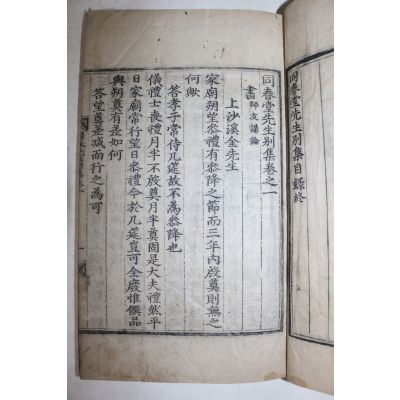 同春堂先生別集目錄終
同春堂先生別集卷之一
書 師友講論
上沙溪金先生
家廟朔望叅禮有叅降之節而三年內殷奠則無之
何歟
答孝子常侍几筵故不爲叅降也
儀禮士喪禮月半不殷奠月半奠固是大夫禮然平
日家廟行望日叅禮今於几筵豈可全廢惟饌品
與朔奠有差如何
答望奠差减而行之爲可